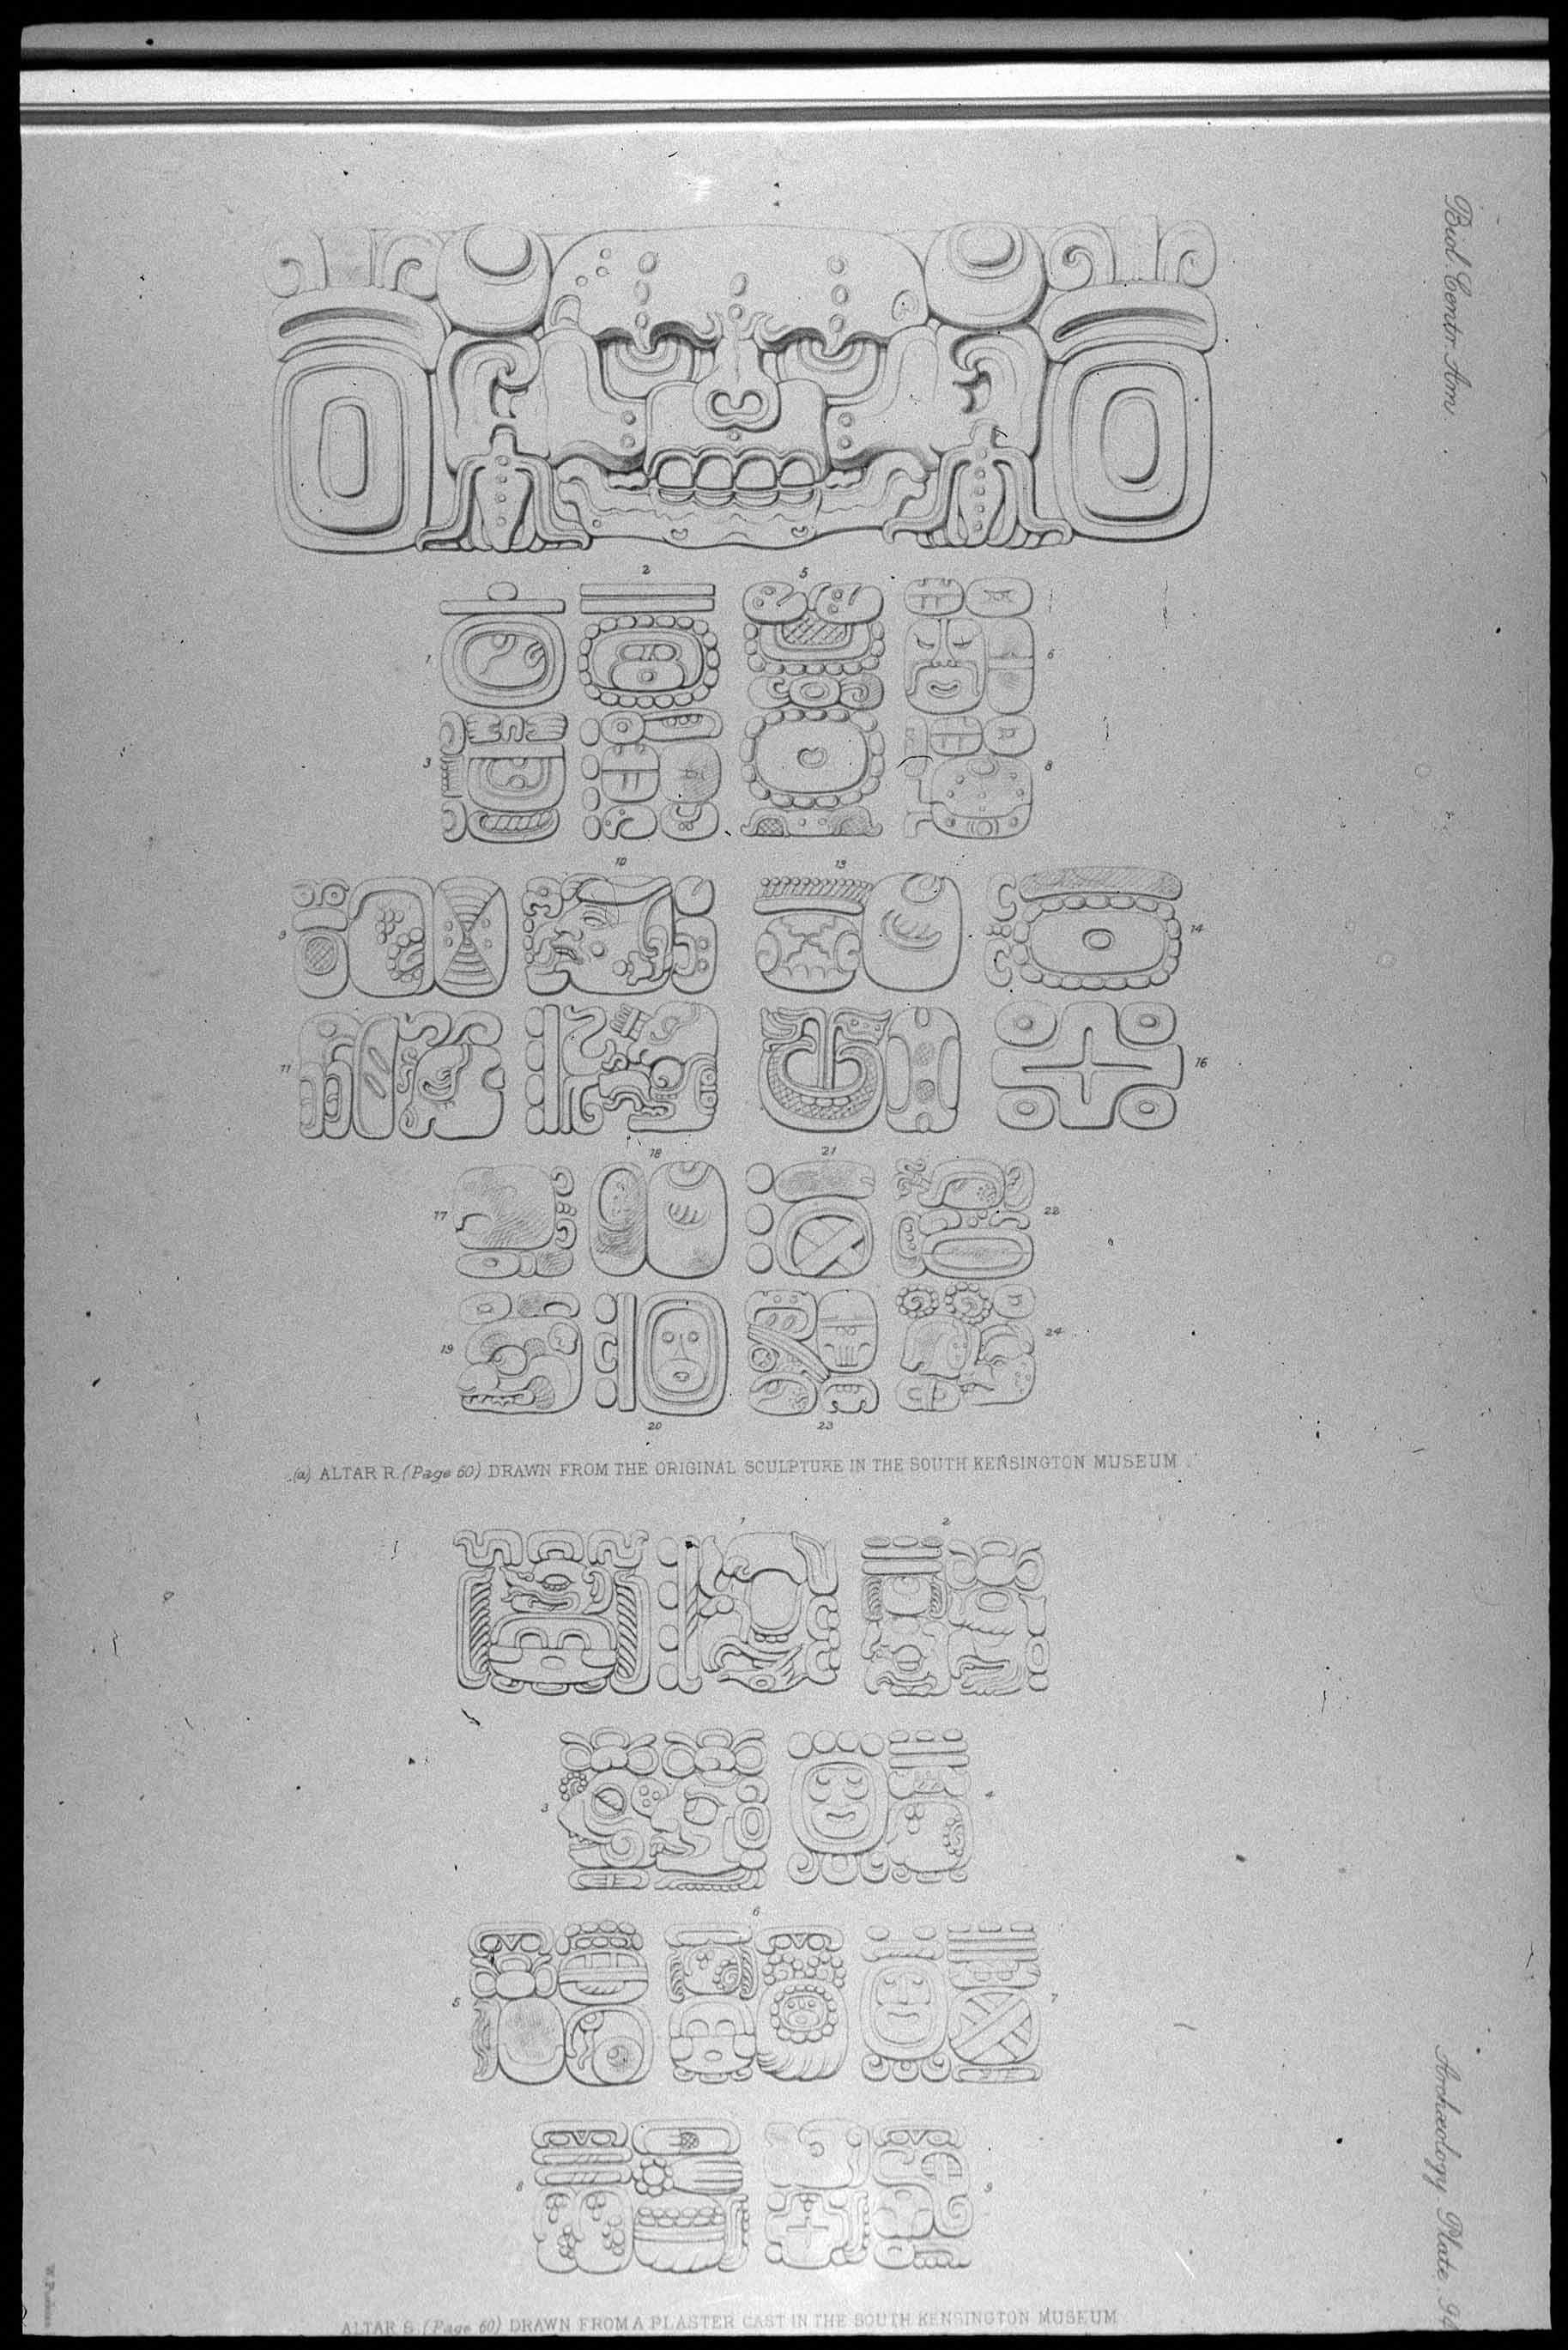 Biol. Centr. Am.
2 5
1 6
3 8
10 13
9 14
11 16
18 21
17 22
19 24
20 23
(a) ALTAR R. (Page 60) DRAWN FROM THE ORIGINAL SCULPTURE IN THE SOUTH KENSINGTON MUSEUM.
1 2
3 4
6
5 7
8 9
ALTAR S. (Page 60) DRAWN FROM A PLASTER CAST IN THE SOUTH KENSINGTON MUSEUM
Archæology Plate 94